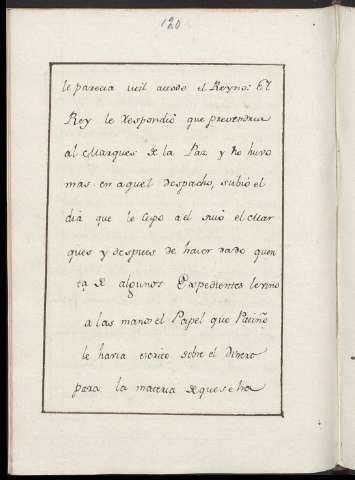 120
le parecia util a todo el Reyno: El
Rey le Respondió que prevendria
al Marques de la Paz y No huvo
mas en aquel despacho, subió el
dia que le copo a el suió el Mar
ques y despues de haver dado quen
ta de algunos Expedientes le vino
a las manos el Papel que Patiño
le havia escrito sobre el Dinero
para la materia de que se ha